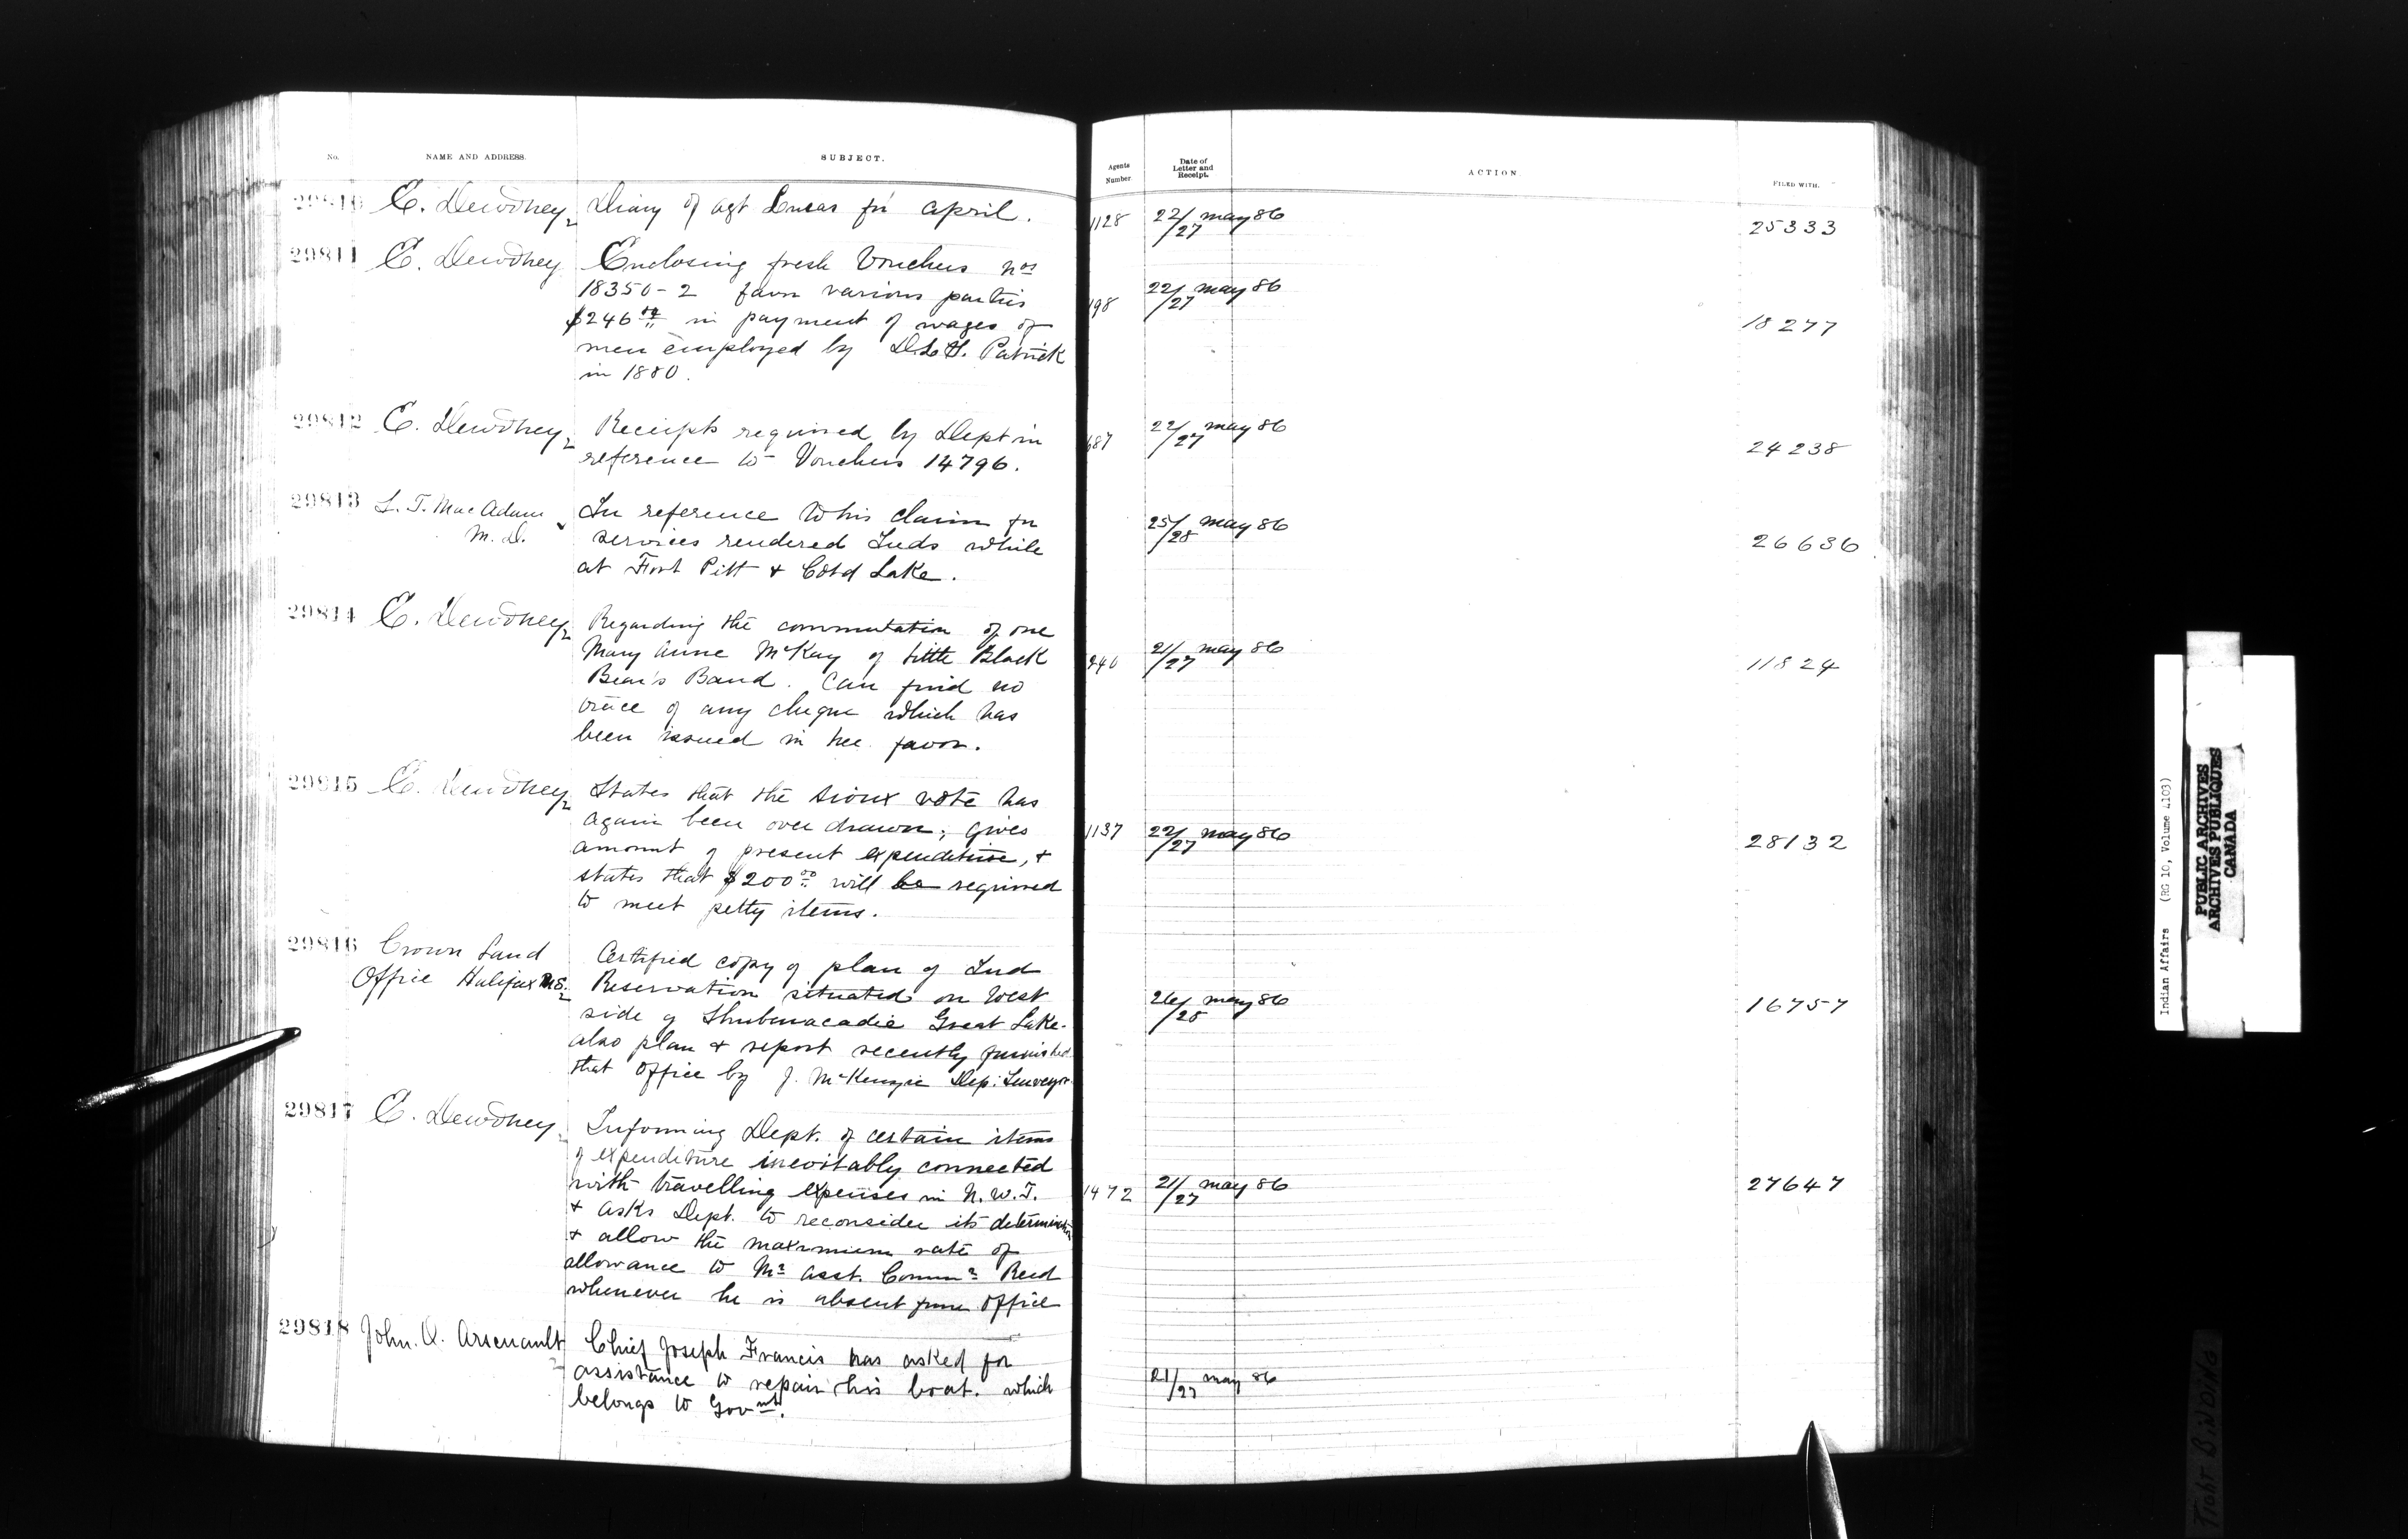 No. NAME AND ADDRESS. SUBJECT. Agents Number. Date of Letter and Receipt. ACTION FILED WITH.
29810 E. Dewdney Diary of Agt Lucas for April. 1128 22/27 May 86 25333
29811 E. Dewdney Enclosing fresh Vouchers Nos
18350-2 favor various parties 198 22/27 May 86
$246 in payment of wages of 18277
men employed by D.L.S. Patrick
in 1880.
29812 E. Dewdney Receipts required by Dept in 687 22/27 May 86 24238
reference to Vouchers 14796.
29813 L. T. MacAdam In reference to his claim for 25/28 May 86
M.D. services rendered Inds while 26636
at Fort Pitt & Cold Lake.
29814 E. Dewdney Regarding the commutation of one
Mary Anne McKay of Little Black 240 21/27 May 86 11824
Bear's Band. Can find no
trace of any cheque which has
been issued in her favor.
29815 E. Dewdney States that the Sioux vote has
again been over drawn; gives 1137 22/27 May 86 28132
amount of present expenditure, &
states that $200.00 will be required
to meet petty items.
29816 Crown Land Certified copy of plan of Ind
Office Halifax N.S. Reservation situated on West 26/28 May 86 16757
side of Shubenacadie Great Lake.
also plan & report recently furnished
that Office by J. McKenzie Dep: Surveyor
29817 E. Dewdney Informing Dept. of certain items
of expenditure inevitably connected
with travelling expenses in N.W.T. 1472 21/27 May 86 27647
& asks Dept. to reconsider its determination
& allow the maximum rate of
allowance to Mr Asst. Commr Reed
whenever he is absent from Office
29818 John. O. Arsenault Chief Joseph Francis has asked for
assistance to repair his boat. which 21/27 May 86
belongs to Govmt.
Indian Affairs (RG 10, Volume 4103)
PUBLIC ARCHIVES
ARCHIVES PUBLIQUES
CANADA
TIGHT BINDING